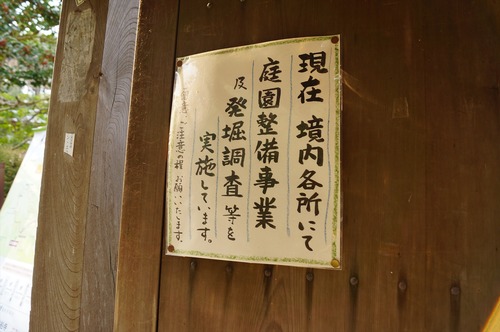 現在 境内各所にて
庭園整備事業
及 発掘調査 等を
実施しています。
ご注意の程 お願いいたします。